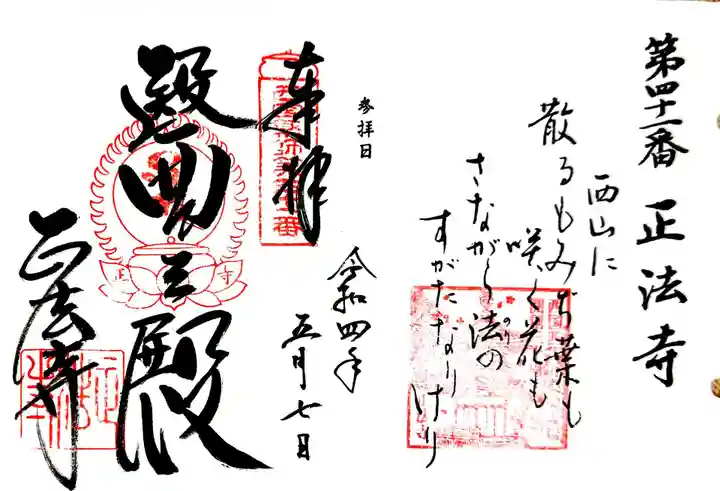 第四十一番 正法寺
西山に
散るもみぢ葉も
咲く花も
さながら法の
のり
すがたなりけり
参拝日
令和四年
五月七日
奉拝
遍照殿
正法寺
正
寺